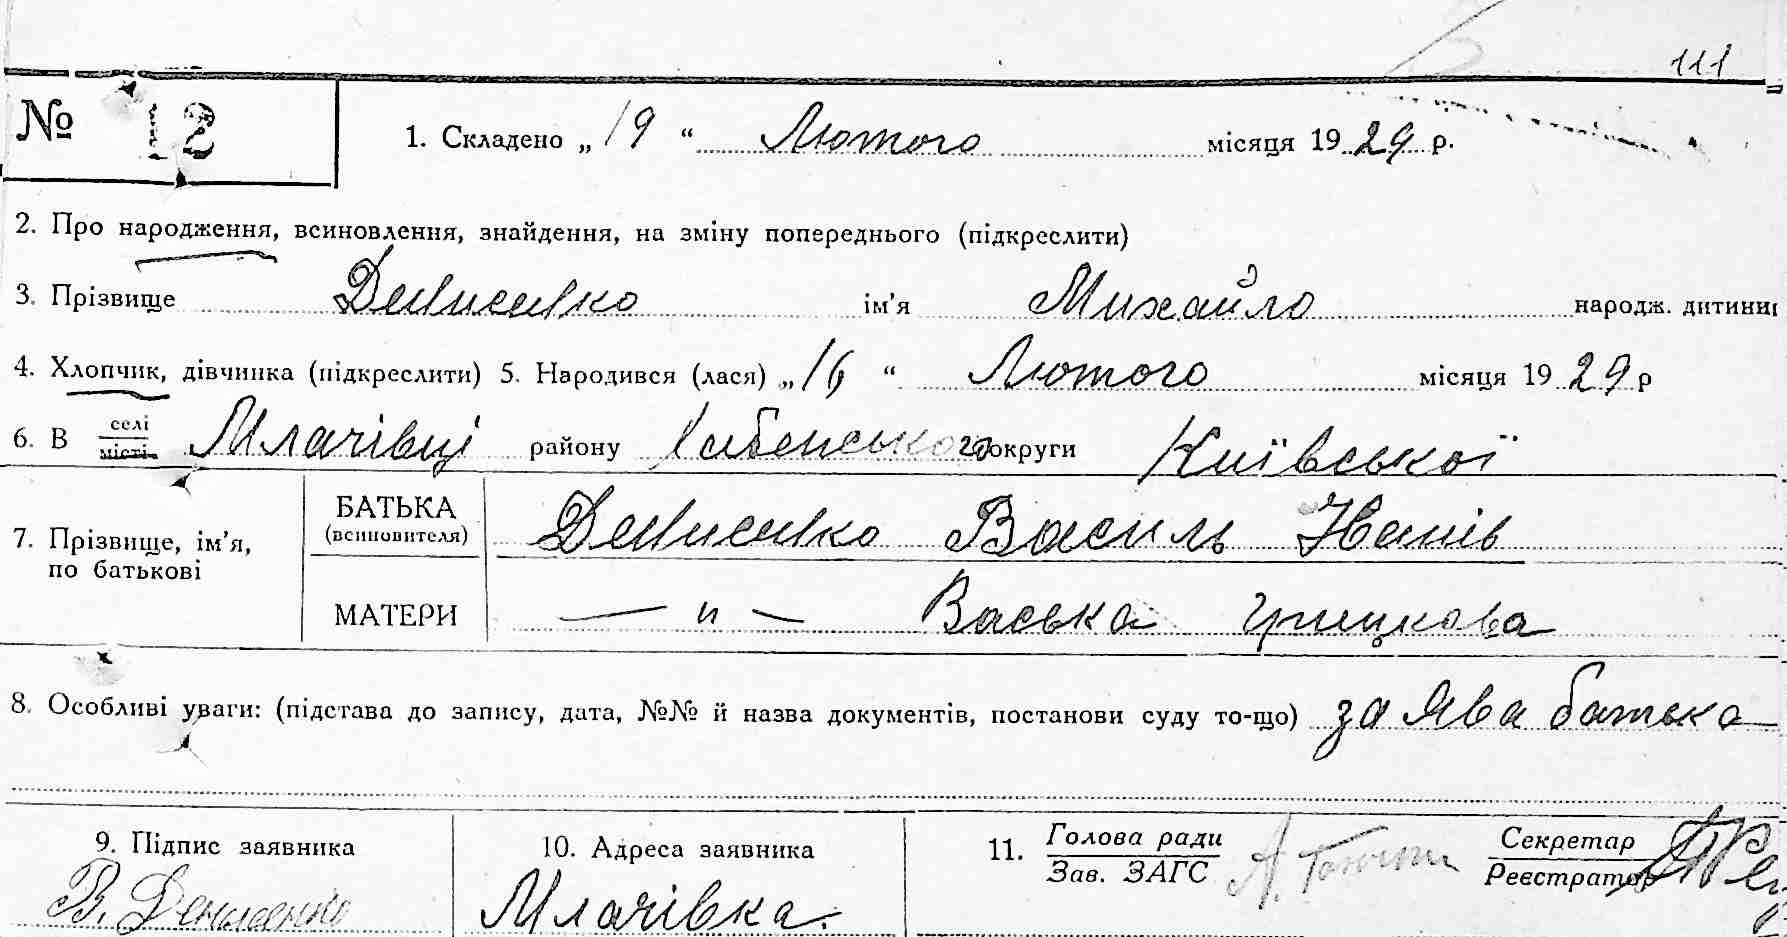 111
№ 12 1. Складено „19“ Лютого місяця 1929 р.
2. Про народження, всиновлення, знайдення, на зміну попереднього (підкреслити)
3. Прізвище Денисенко ім’я Михайло народж. дитини
4. Хлопчик, дівчинка (підкреслити) 5. Народився (лася) „16“ Лютого місяця 1929 р
6. В селі місті Млачівці району Хабенського округи Київської
7. Прізвище, ім’я, по батькові
БАТЬКА (всиновителя) Денисенко Василь
МАТЕРИ — „ — Васька Грицкова
8. Особливі уваги: (підстава до запису, дата, №№ й назва документів, постанови суду то-що) за Ява батька
9. Підпис заявника
В. Денисенко
10. Адреса заявника
Млачівка.
11. Голова ради
Зав. ЗАГС
Секретар
Реєстратор